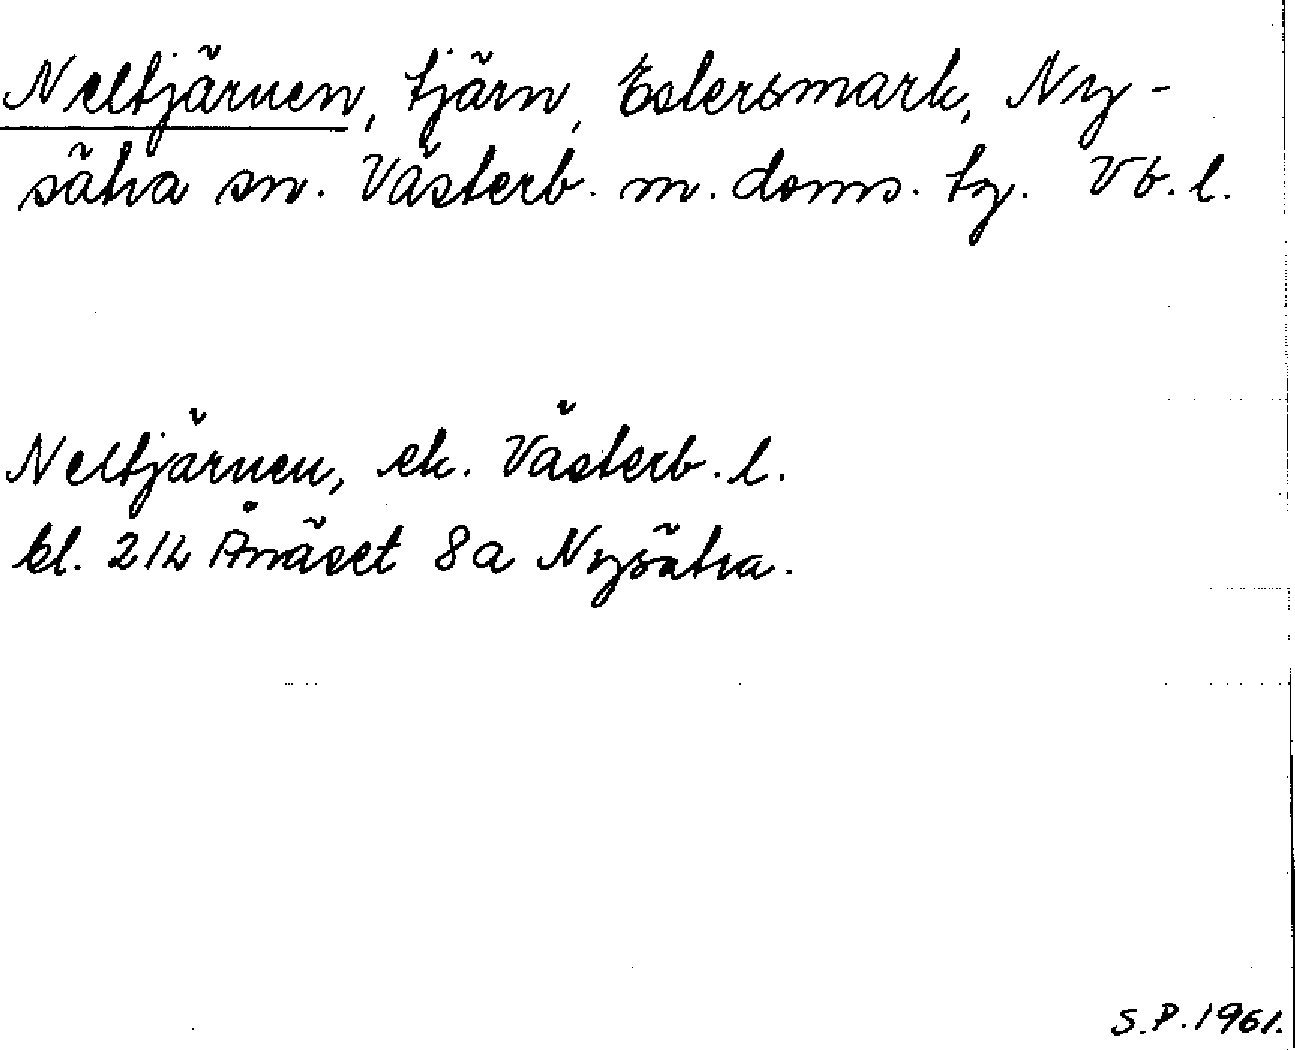 Neltjärnen, tjärn, Estersmark, Ny-
sätra sn. Västerb. m. doms. tg. Vb. l.
Neltjärnen, ek. Västerb. l.
bl. 21L Ånäset 8a Nysätra.
S.P. 1961.